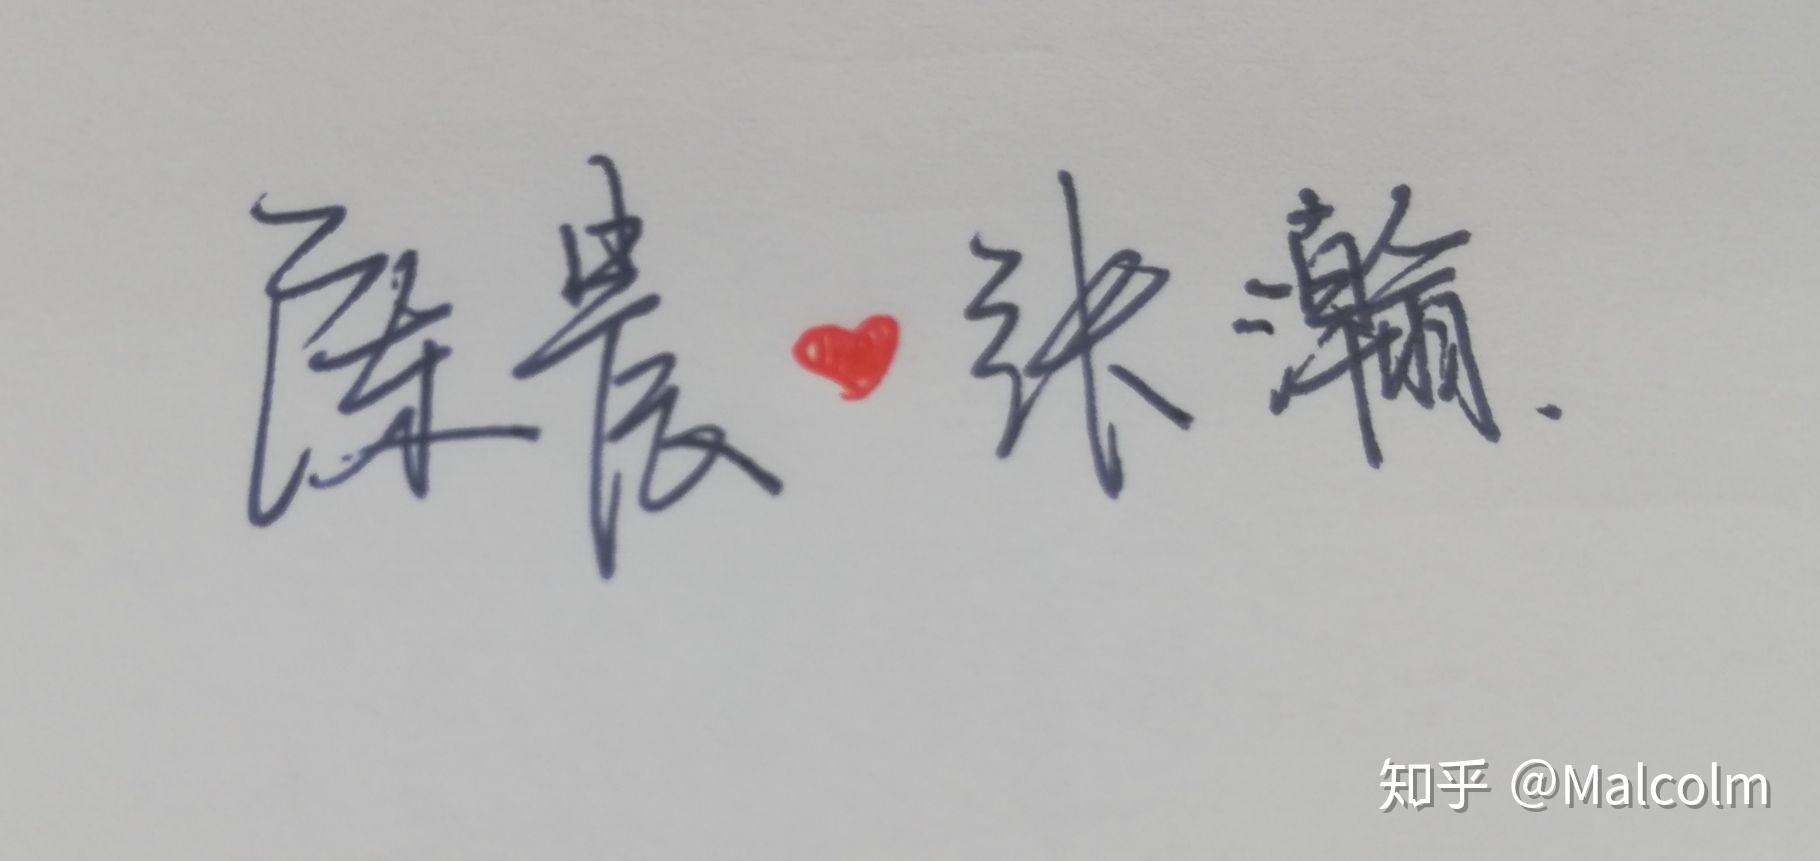 陈晨❤张瀚.
知乎 @Malcolm